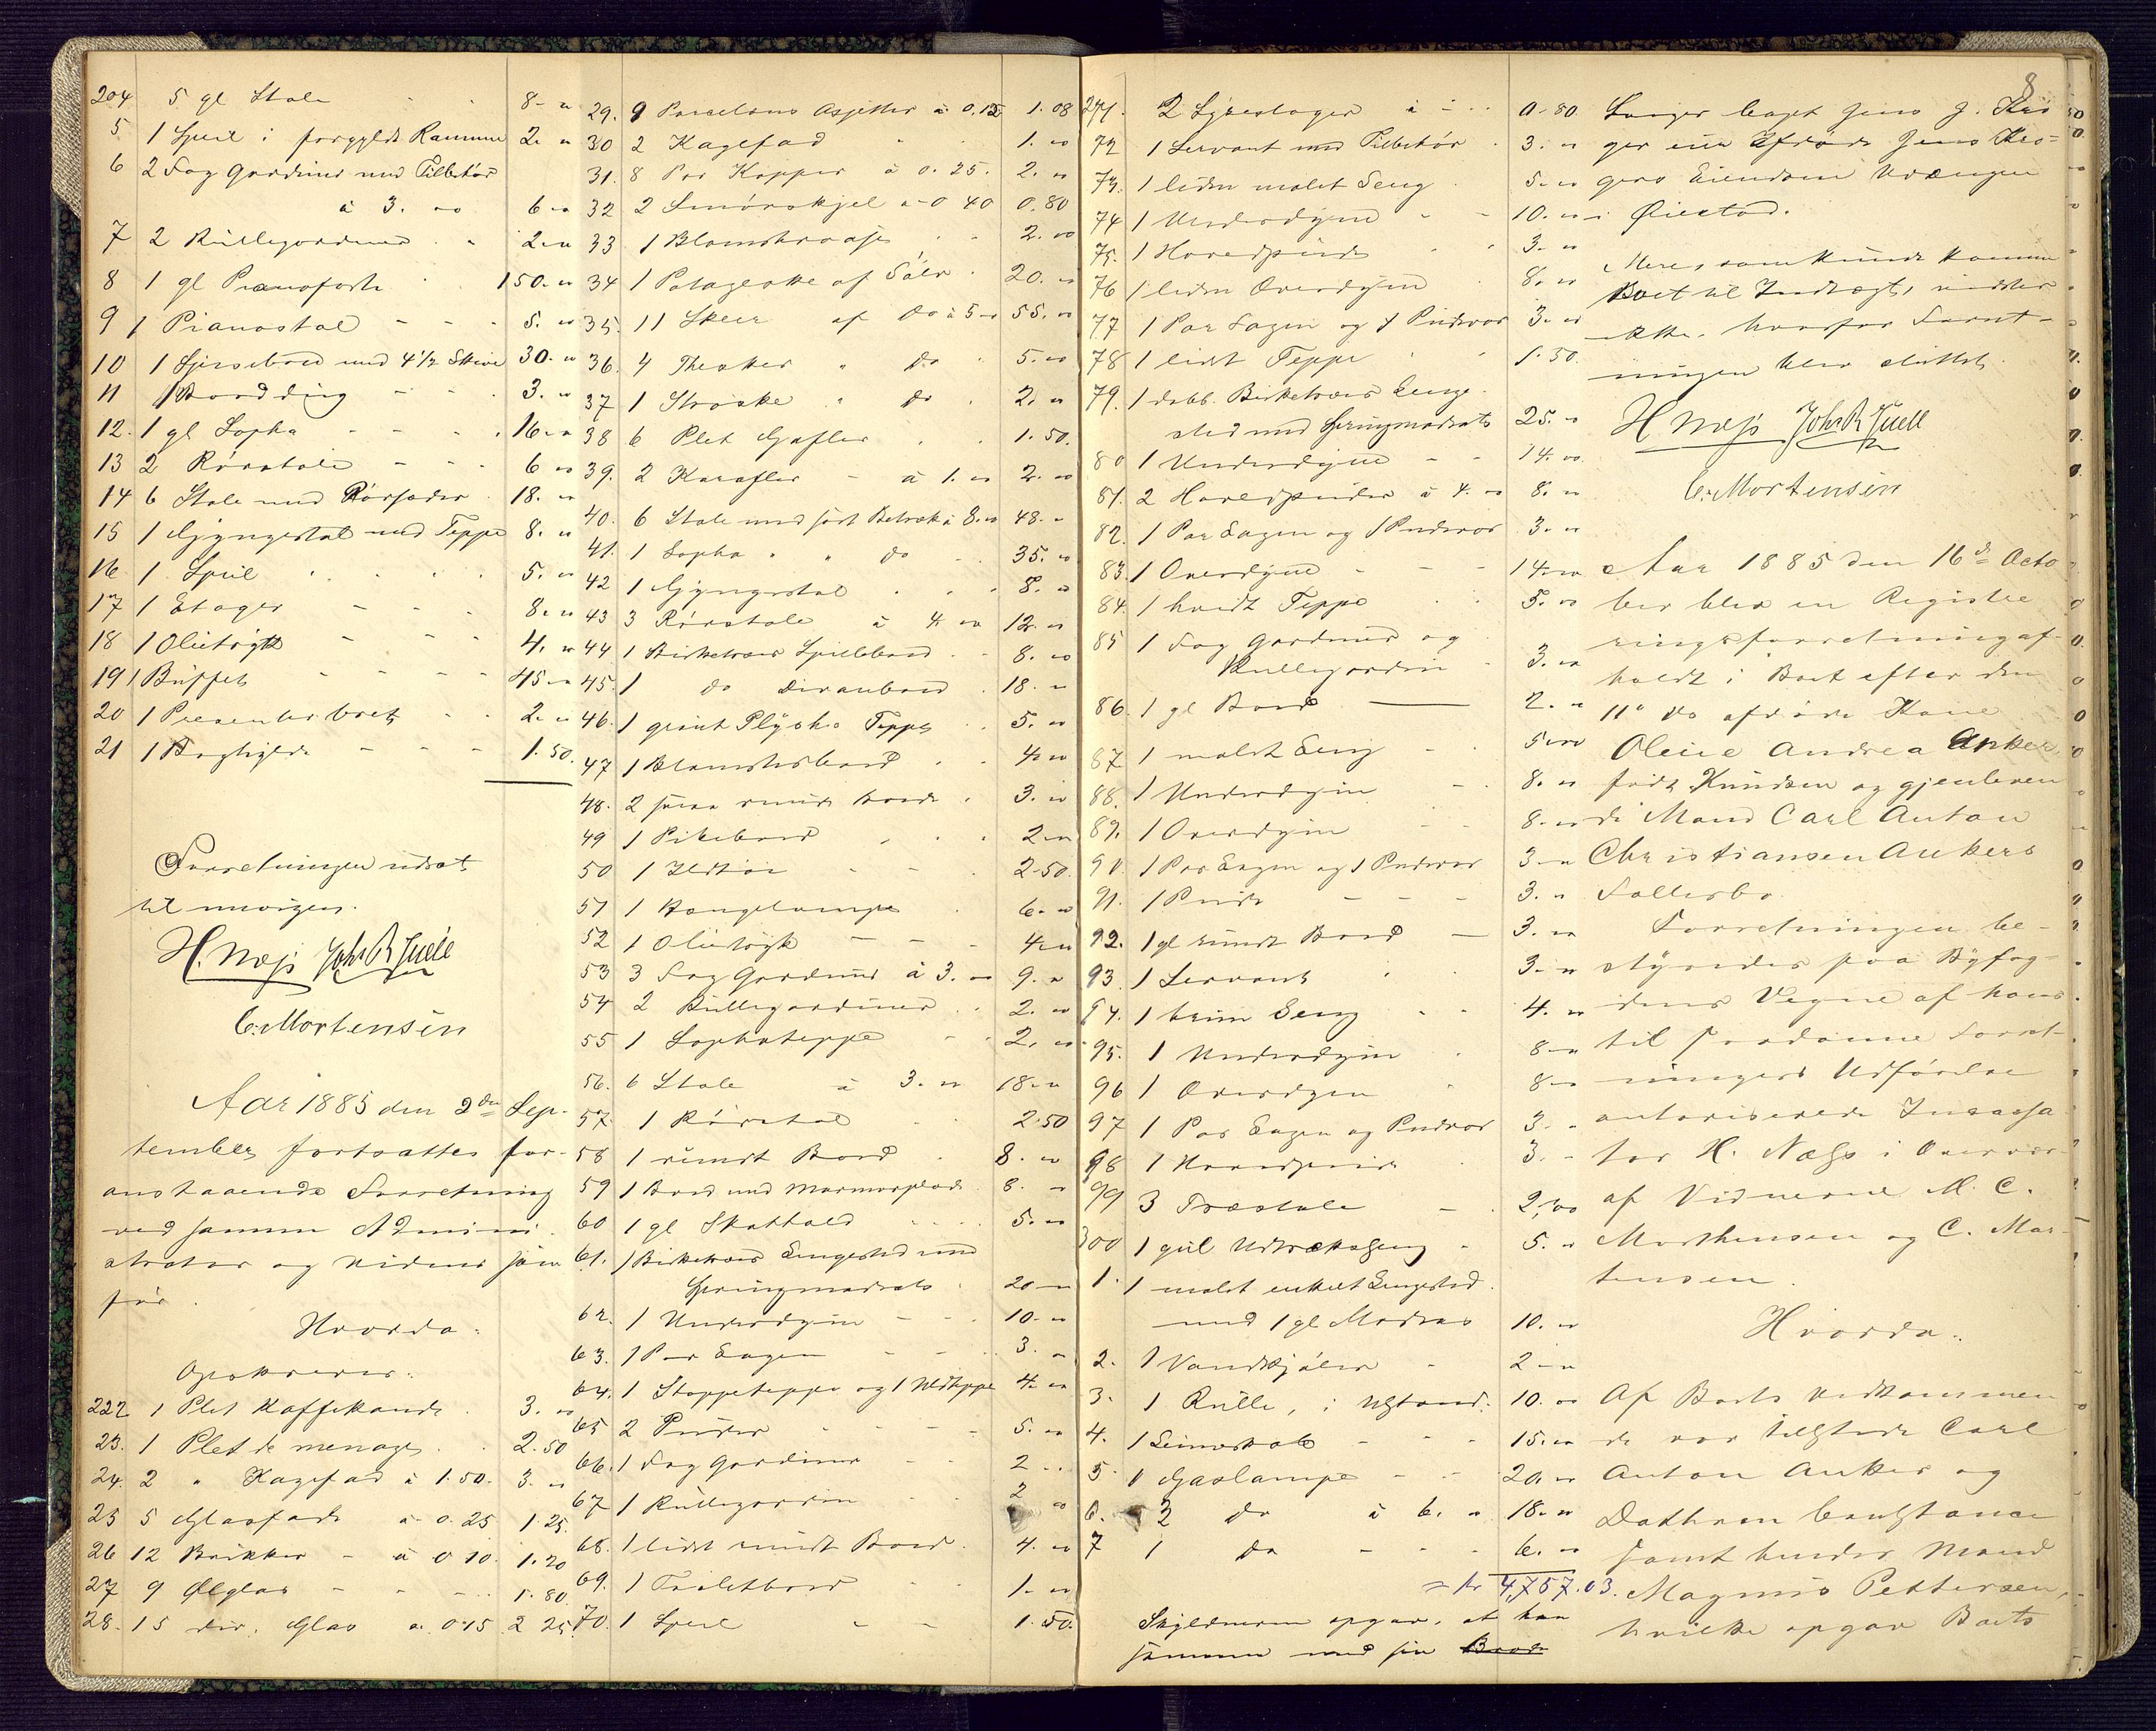 204 5 gl Stole 8. "
5 1 Speil i forgyldt Ramme 2. "
6 2 Fag Gardiner med Tilbehør
à 3. 00 6. "
7 2 Rullegardiner 2. "
8 1 gl Pianoforte 150. "
9 1 Pianostol 5. "
10 1 Spisebord med 4 1/2 Skive 30. "
11 1 Bord ding 3. "
12. 1 gl Sopha 16. "
13 2 Rørstole 6 00
14 6 Stole med Rørsæder 18. "
15 1 Gyngestol med Teppe 8. "
16 1 Speil 5. "
17 1 Etager 8. "
18 1 Olietrykk 4. "
19 1 Buffet 45. "
20 1 Presenterbret 2. "
21 1 Boghylde 1. 50.
Forretningen udsat
til imorgen.
H. Næss Joh. R Juell
C. Mortensen
Aar 1885 den 2den Sep-
tember fortsattes for-
anstaaende Forretning
ved samme Admini-
strator og Vidner som
før.
Hvorda:
Opskreves:
222 1 Plet Kaffekande 3. 00
23. 1 Plet de menage 2. 50
24. 2 " Kagefad à 1. 50. 3. "
25 5 Glasfade à 0. 25 1. 25.
26 12 Brikker - à 0 10. 1. 20
27 9 Ølglas 1. 80
28. 15 div. Glas à 0 15 2 25
29. 9 Porcelæns Asjetter à 0. 12 1. 08
30 2 Kagefad 1. 00
31. 8 Par Kopper à 0. 25. 2. "
32 2 Smørskjel à 0 40 0. 80
33 1 Blomstervase 2. 00
34 1 Potageske af Sølv 20. "
35. 11 Skeer af do à 5 - 55. "
36. 4 Theskeer " do 5. 00
37 1 Strøske " do 2. "
38 6 Plet Gafler 1. 50.
39. 2 Karafler - à 1. 00 2. 00
40. 6 Stole med sort Betræk à 8. 00 48. -
41. 1 Sopha " " do 35. 00
42 1 Gyngestol 8. "
43 3 Rørstole à 4 00 12. "
44 1 Birketræes Spillebord 8. 00
45. 1 do Divanbord 18. "
46. 1 grønt Plyshs Teppe 5. "
47 1 Blomsterbord 4. 00
48. 2 smaa runde Borde 3. "
49 1 Pibebord 2. "
50 1 Ildtøi 2. 50.
51 1 Hængelampe 6. "
52 1 Olietrykk 4. "
53 3 Fag Gardiner à 3. 00 9. "
54 2 Rullegardiner 2. 00
55 1 Sophateppe 2. 00
56. 6 Stole à 3. " 18. "
57. 1 Rørstol 2. 50
58 1 rundt Bord 8. "
59 1 Bord med Marmorplade 8. "
60 1 gl Skathold 5. "
61. 1 Birketræes Sengested med
Springmadrats 20. "
62. 1 Underdyne 10. "
63. 1 Par Lagen 3. "
64. 1 Stoppeteppe og 1 Uldteppe 4. "
65 2 Puder 5. "
66. 1 Fag Gardiner 2 . .
67 1 Rullegardin 2 00
68. 1 lidet rundt Bord 4. 00
69. 1 Toiletbord 1. "
70. 1 Speil 1. 50.
8
271. 2 Lysestager à - 0. 80
72 1 Servant med Tilbehør 3. "
73. 1 liden malet Seng 5. "
74 1 Underdyne 10. "
75. 1 Hovedpude 3. 00
76 1 liden Overdyne 8. "
77 1 Par Lagen og 1 Pudevar 3. "
78 1 lidet Teppe 1. 50.
79. 1 dobb. Birketræes Senge-
sted med Springmadrats 25. "
80 1 Underdyne 14. 00
81. 2 Hovedpuder à 4. 00 8. "
82. 1 Par Lagen og 1 Pudevar 3. "
83. 1 Overdyne 14. 00
84. 1 hvidt Teppe 5. 00
85 1 Fag Gardiner og
Rullegardin 3. 00
86. 1 gl Bord 2. "
87 1 malet Seng 5. 00
88. 1 Underdyne 8. "
89. 1 Overdyne 8. "
90. 1 Par Lagen og 1 Pudevar 3. "
91. 1 Pude 3. "
92. 1 gl rundt Bord 3. "
93. 1 Servant 3. "
94. 1 brun Seng 4. "
95. 1 Underdyne 8. "
96 1 Overdyne 8. "
97 1 Par Lagen og Pudevar 3. "
98 1 Hovedpude 3. "
99 3 Træstole 2. 00
300 1 gul Udtræksseng 5. "
1. 1 malet enkelt Sengested
med 1 gl Madras 10. "
2. 1 Vandkjøler 2. "
3. 1 Rulle, i Ustand. 10. 00
4. 1 Linneskab 15. 00
5 1 Gaslampe 20. "
6. 3 do à 6. " 18. "
7 1 do 6. "
= kr 4,757. 03.
Skyldneren opgav, at han
sammen med sin Brode
Svoger Capt Jens J. Krø
ger eier Afdøde Jens Krø-
gers Eiendom Vrængen
i Øiestad.
Mere, som kunde komme
Boet til Indtægt, vidstes
ikke, hvorfor Forret-
ningen blev sluttet.
H Næss Joh. R Juell
C. Mortensen
Aar 1885 den 16de Octo
ber blev en Registre
ringsforretning af-
holdt i Boet efter den
11te ds afdøde Kone
Oleue Andrea Anker
født Knudsen og gjenleven
de Mand Carl Anton
Christiansen Ankers
Fællesbo.
Forretningen be-
styredes paa Byfog-
dens Vegne af hans
til saadanne Forret-
ningers Udførelse
autoriserede Incassa-
tor H. Næss i Overvær
af Vidnerne M. C.
Morthensen og C. Mor-
tensen.
Hvorda:
Af Boets Vedkommen
de var tilstede Carl
Anton Anker og
Datteren Constance
samt hendes Mand
Magnus Pettersen,
hvilke opgav Boets